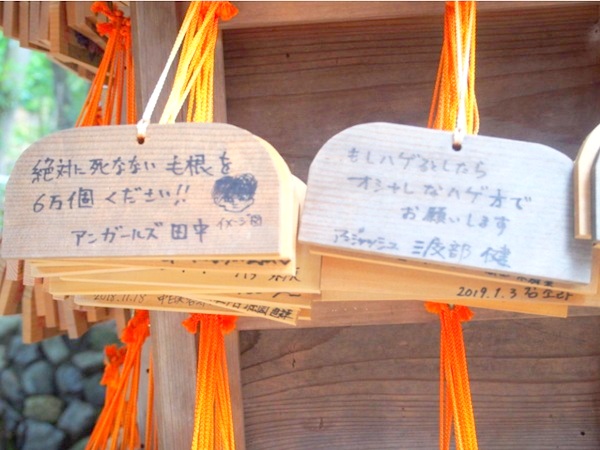 絶対に死なない毛根を
6万個ください!!
イメージ図
アンガールズ 田中
もしハゲるとしたら
オシャレなハゲオで
お願いします
アンジャッシュ 渡部 健
2018.11.18
2019.1.3